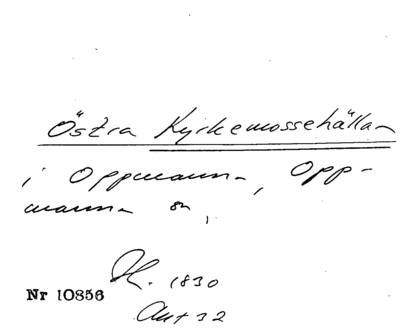 Östra Kyrkemossehällan
i Oppmanna, Opp-
manna sn,
H. 1830
Nr 10856
Akt 32